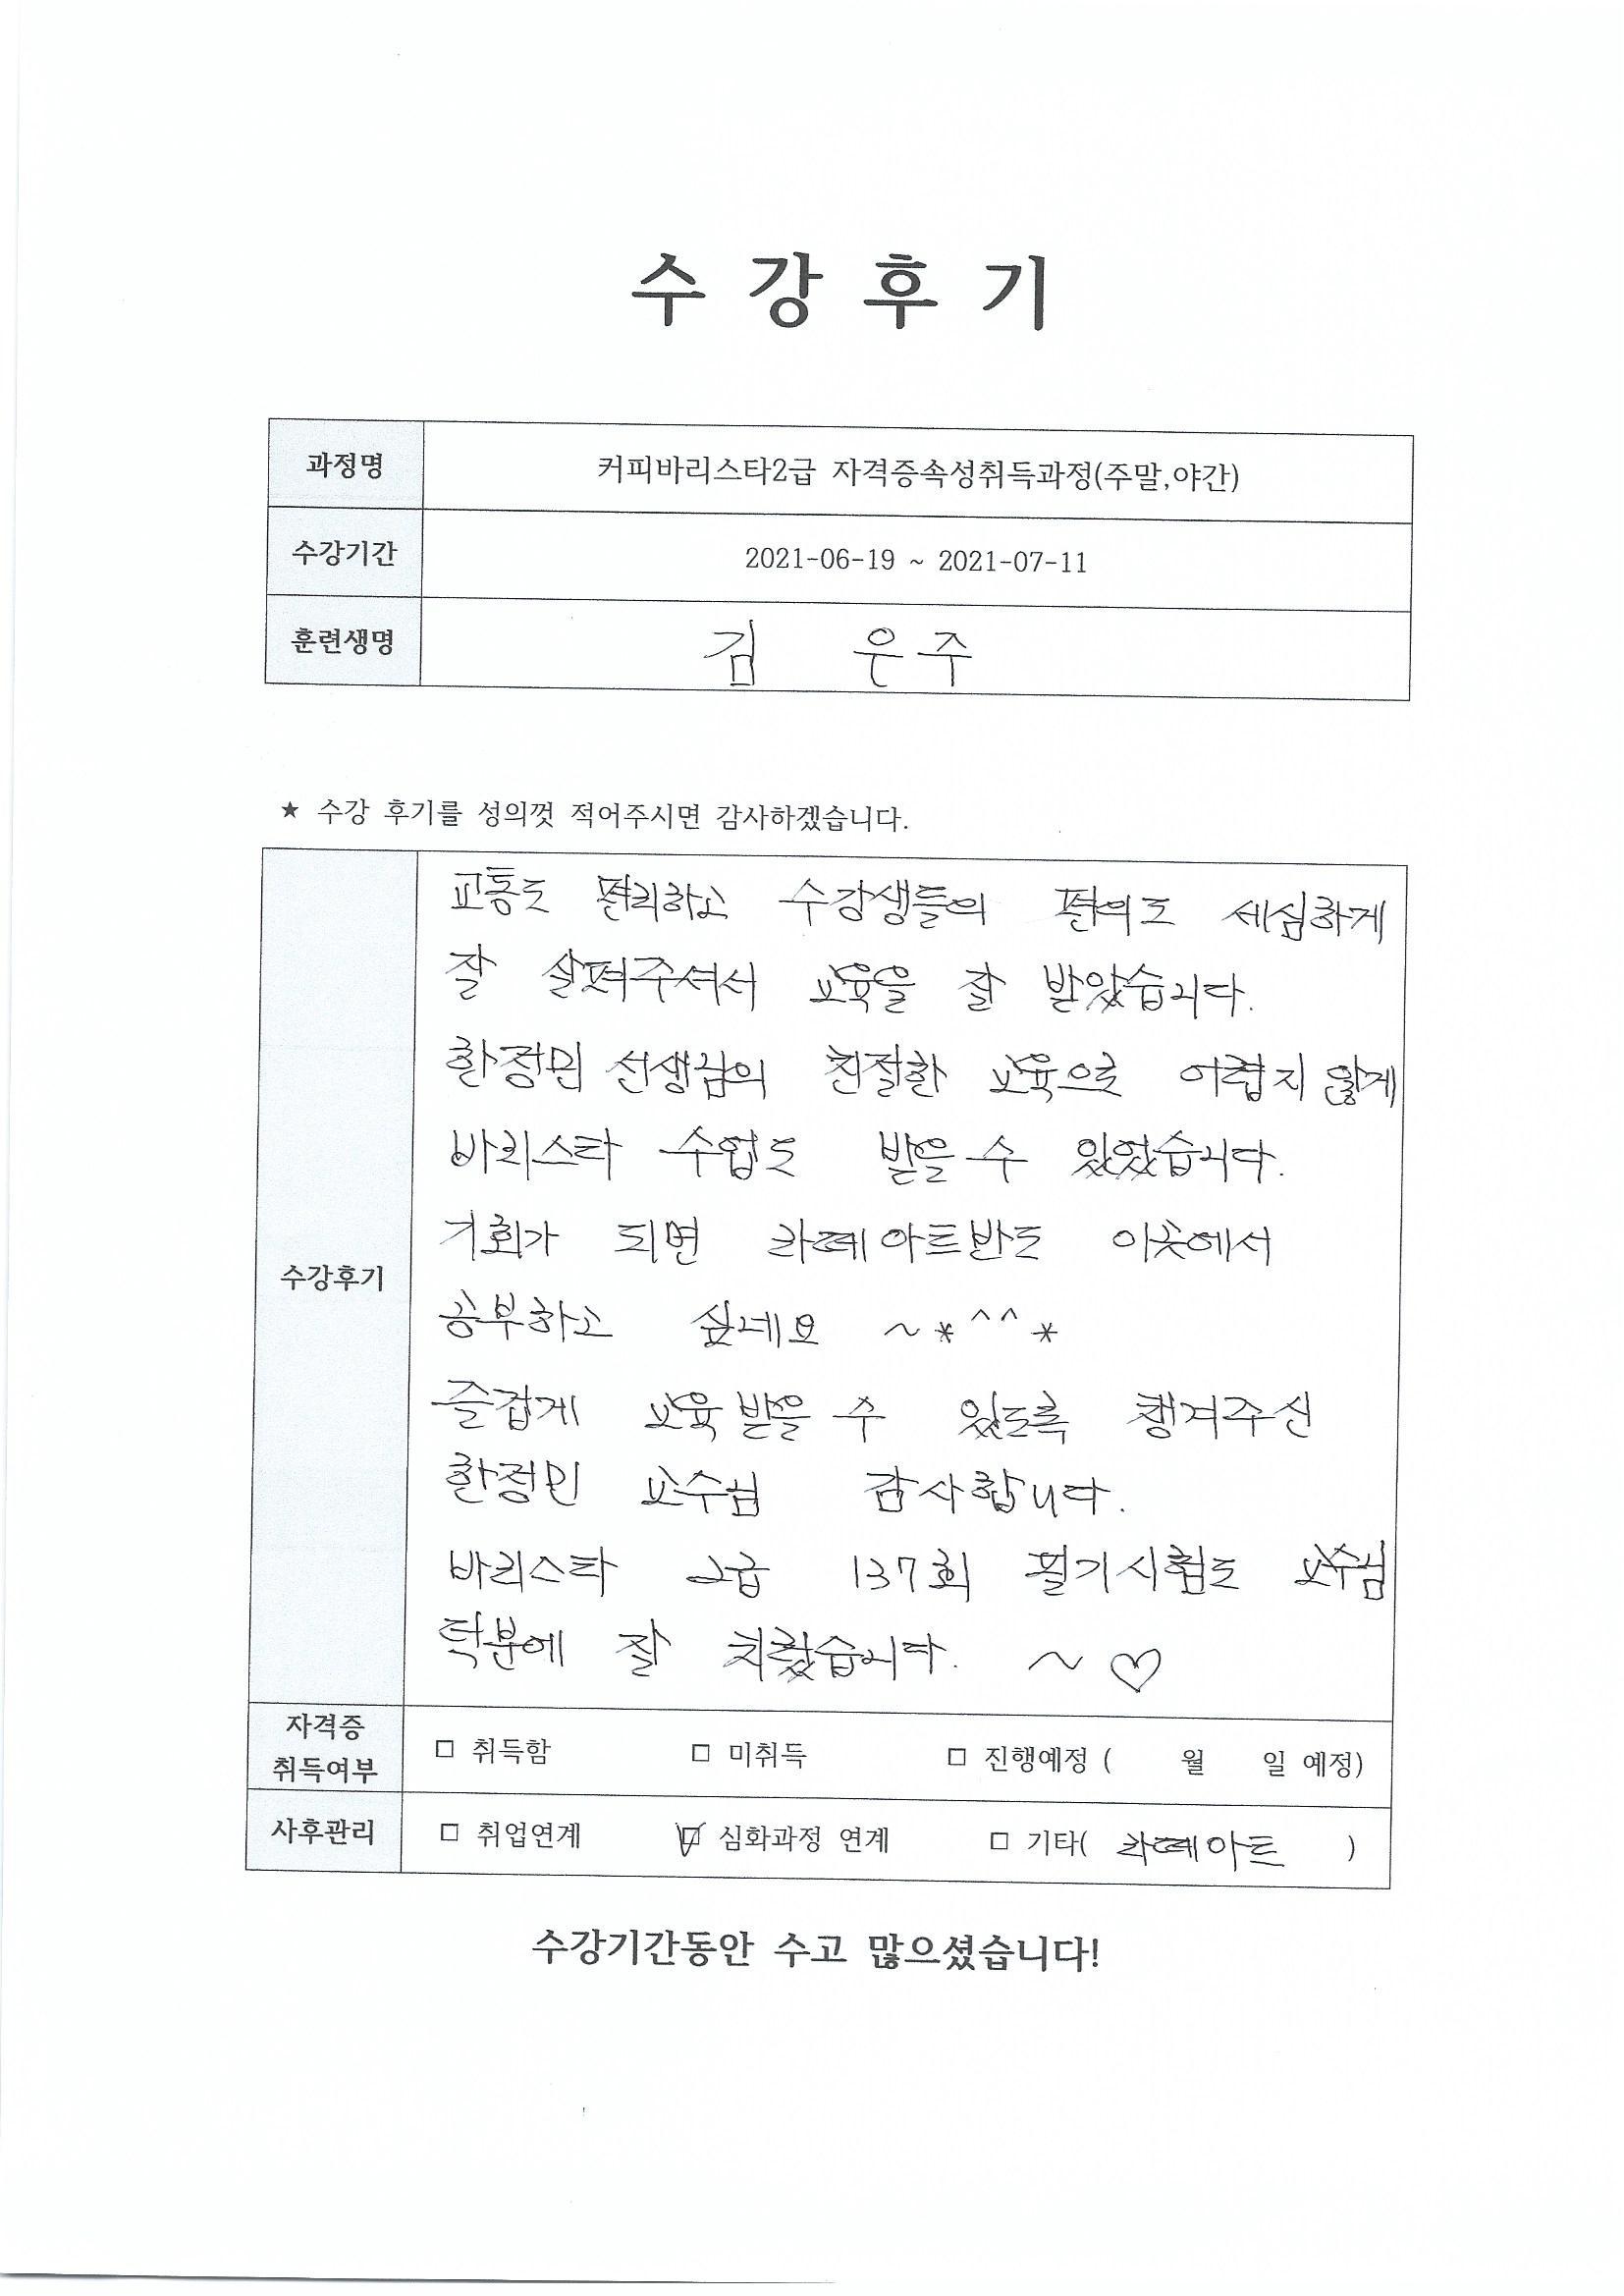 수 강 후 기
과정명 커피바리스타2급 자격증속성취득과정(주말,야간)
수강기간 2021-06-19 ~ 2021-07-11
훈련생명 김 은주
★ 수강 후기를 성의껏 적어주시면 감사하겠습니다.
수강후기
교통도 편리하고 수강생들의 편의도 세심하게
잘 살펴주셔서 교육을 잘 받았습니다.
한정민 선생님의 친절한 교육으로 어렵지 않게
바리스타 수업도 받을 수 있었습니다.
기회가 되면 라떼아트반도 이곳에서
공부하고 싶네요 ~*^^*
즐겁게 교육 받을 수 있도록 챙겨주신
한정민 교수님 감사합니다.
바리스타 2급 137회 필기시험도 교수님
덕분에 잘 치뤘습니다. ~♡
자격증 취득여부 □ 취득함 □ 미취득 □ 진행예정 ( 월 일 예정)
사후관리 □ 취업연계 ☑ 심화과정 연계 □ 기타( 라떼아트 )
수강기간동안 수고 많으셨습니다!